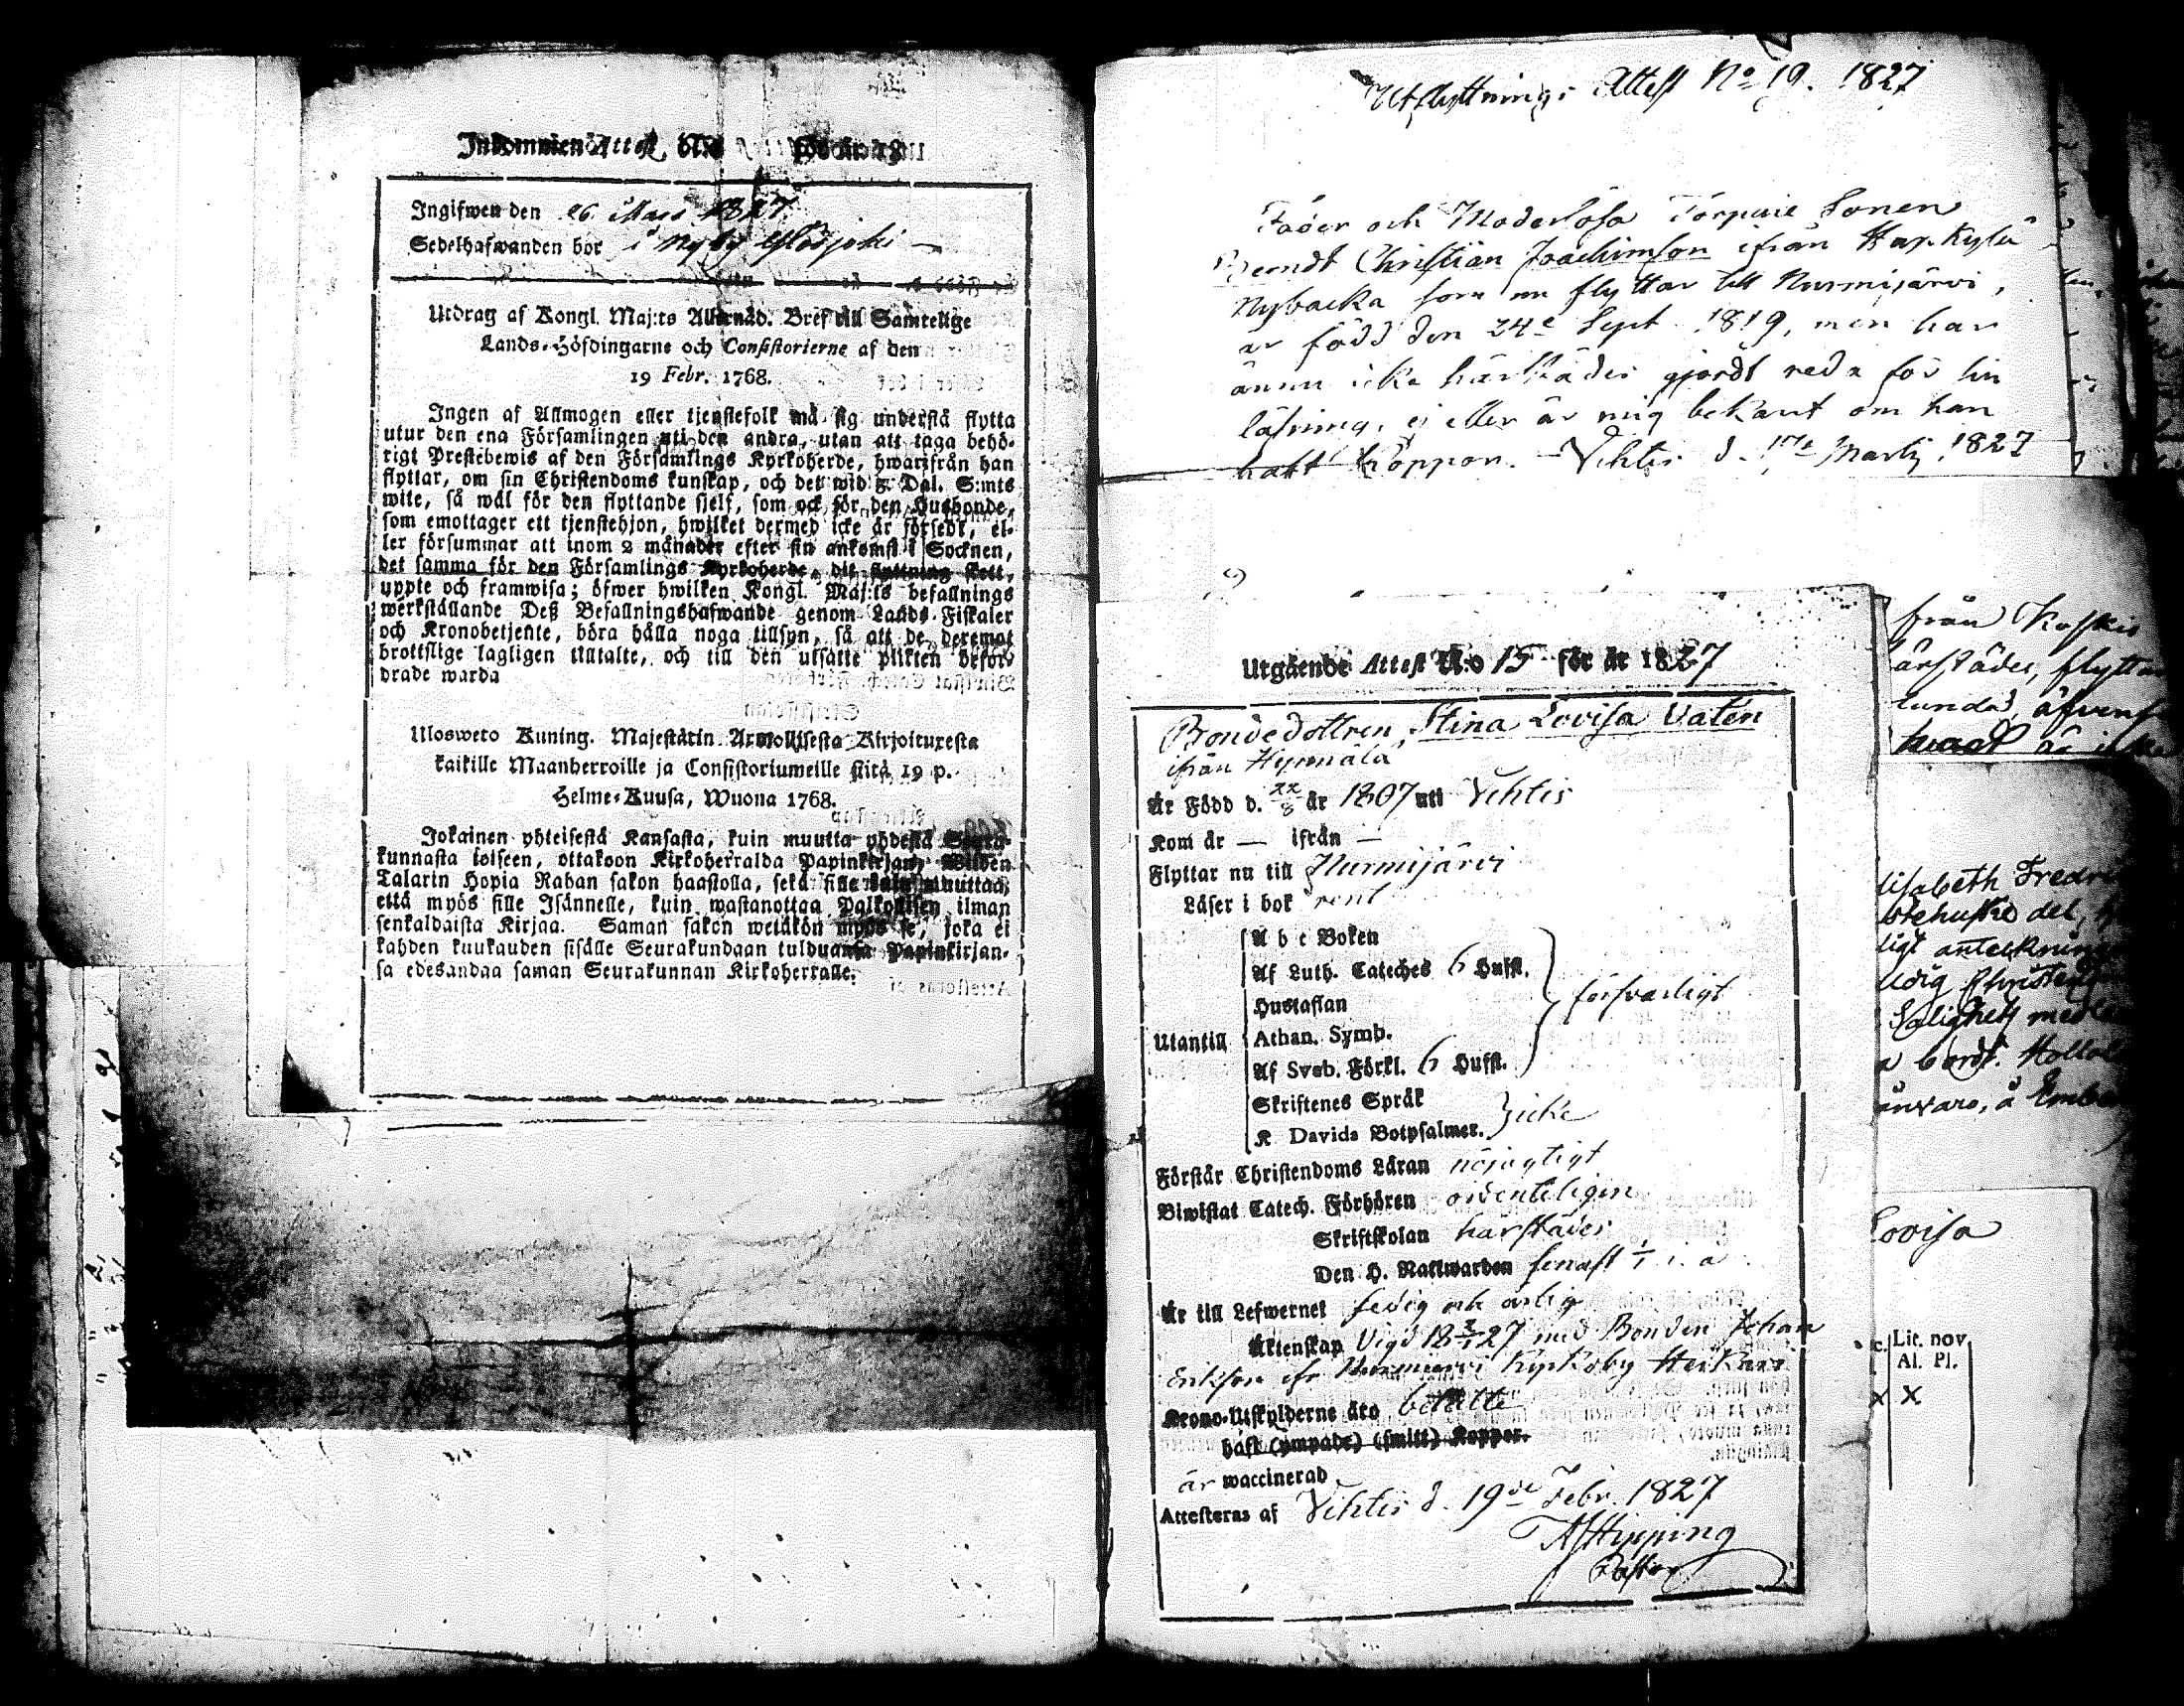 Inkommen Attest N:o för år 18
Ingifwen den 26 Mars 1827.
Sedelhafwanden bor i Nyby
Utdrag af Kongl. Maj:ts Allernåd. Bref till Samtelige
Lands-Höfdingarne och Consistorierne af den
19 Febr. 1768.
Ingen af Allmogen eller tjenstefolk må sig understå flytta
utur den ena Församlingen uti den andra, utan att taga behö-
rigt Prestebewis af den Församlings Kyrkoherde, hwarifrån han
flyttar, om sin Christendoms kunskap, och det wid 5 Dal. S:mts
wite, så wäl för den flyttande sjelf, som ock för den Husbonde,
som emottager ett tjenstehjon, hwilket dermed icke är försedt, el-
ler försummar att inom 2 månader efter sin ankomst i Socknen,
det samma för den Församlings Kyrkoherde, dit flyttning skett,
uppte och framwisa; öfwer hwilken Kongl. Maj:ts befallnings
werkställande Deß Befallningshafwande genom Lands-Fiskaler
och Kronobetjente, böra hålla noga tillsyn, så att de deremot
brottslige lagligen tilltalte, och till den utsatte plikten befor-
drade warda
Ulosweto Kuning. Majestätin Armollisesta Kirjoituxesta
kaikille Maanherroille ja Consistoriumeille siitä 19 p.
Helme-Kuusa, Wuona 1768.
Jokainen yhteisestä Kansasta, kuin muutta yhdestä Seura-
kunnasta toiseen, ottakoon Kirkoherralda Papinkirjan, Wijden
Talarin Hopia Rahan sakon haastolla, sekä sille kuin muuttaa,
että myös sille Isännelle, kuin wastanottaa Palkollisen ilman
senkaldaista Kirjaa. Saman sakon wetäkön myös se, joka ei
kahden kuukauden sisälle Seurakundaan tulduansa Papinkirjan-
sa edesandaa saman Seurakunnan Kirkoherralle.
Utflyttnings Attest No 19. 1827
Fader och Moderlösa Torpare Sonen
Berndt Christian Joachimson ifrån Haprkylä
Nybacka som nu flyttar till Nurmijärvi,
är född den 24e Sept. 1819, men har
ännu icke härstädes gjordt reda för sin
läsning, ej eller är mig bekant om han
haft Koppor. Vihtis d. 17e Martij 1827
Utgående Attest N:o 15 för år 1827
Bondedottren Stina Lovisa Vaten
ifrån Hynnälä
Är Född d. 22/8 år 1807 uti Vihtis
Kom år — ifrån —
Flyttar nu till Nurmijärvi
Läser i bok rent
A b c Boken
Af Luth. Cateches 6 Hufst.
Hustaflan
försvarligt
Utantill
Athan. Symb.
Af Sveb. Förkl. 6 Hufst.
Skriftenes Språk
K Davids Botpsalmer. icke
Förstår Christendoms Läran nöjagtigt
Biwistat Catech. Förhören ordenteligen
Skriftskolan härstädes
Den H. Nattwarden senast 1/1 i. å
Är till Lefwernet sedig och ärlig
Äktenskap Vigd 18 27 med Bonden Johan
Eriksson ifr Nurmijärvi Kyrkoby
Krono-Utskylderne äro betalte
haft (ympade) (smitt) Koppor.
är waccinerad
Attesteras af Vihtis d. 19de Febr. 1827
AJHipping
Pastor
från
ärstädes, flyttar
lisabeth Fredri
ligt anteckning
Salighets medle
Lovisa
c. Lit. nov.
Al. Pl.
x x